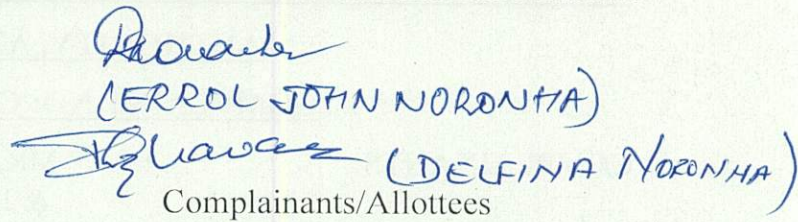 (ERROL JOHN NORONHA)
(DELFINA NORONHA)
Complainants/Allottees